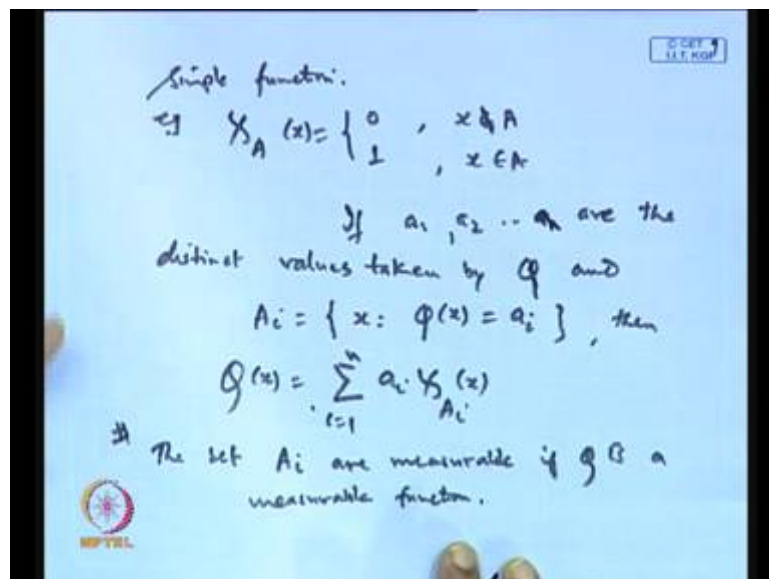 © CET
I.I.T. KGP
Simple function.
eg χ_A (x) = { 0 , x ∉ A
1 , x ∈ A
If a1, a2 .. an are the
distinct values taken by φ and
Ai = { x : φ(x) = ai } , then
φ(x) = Σ_{i=1}^{n} ai χ_{Ai} (x)
# The set Ai are measurable if φ is a
measurable function.
NPTEL